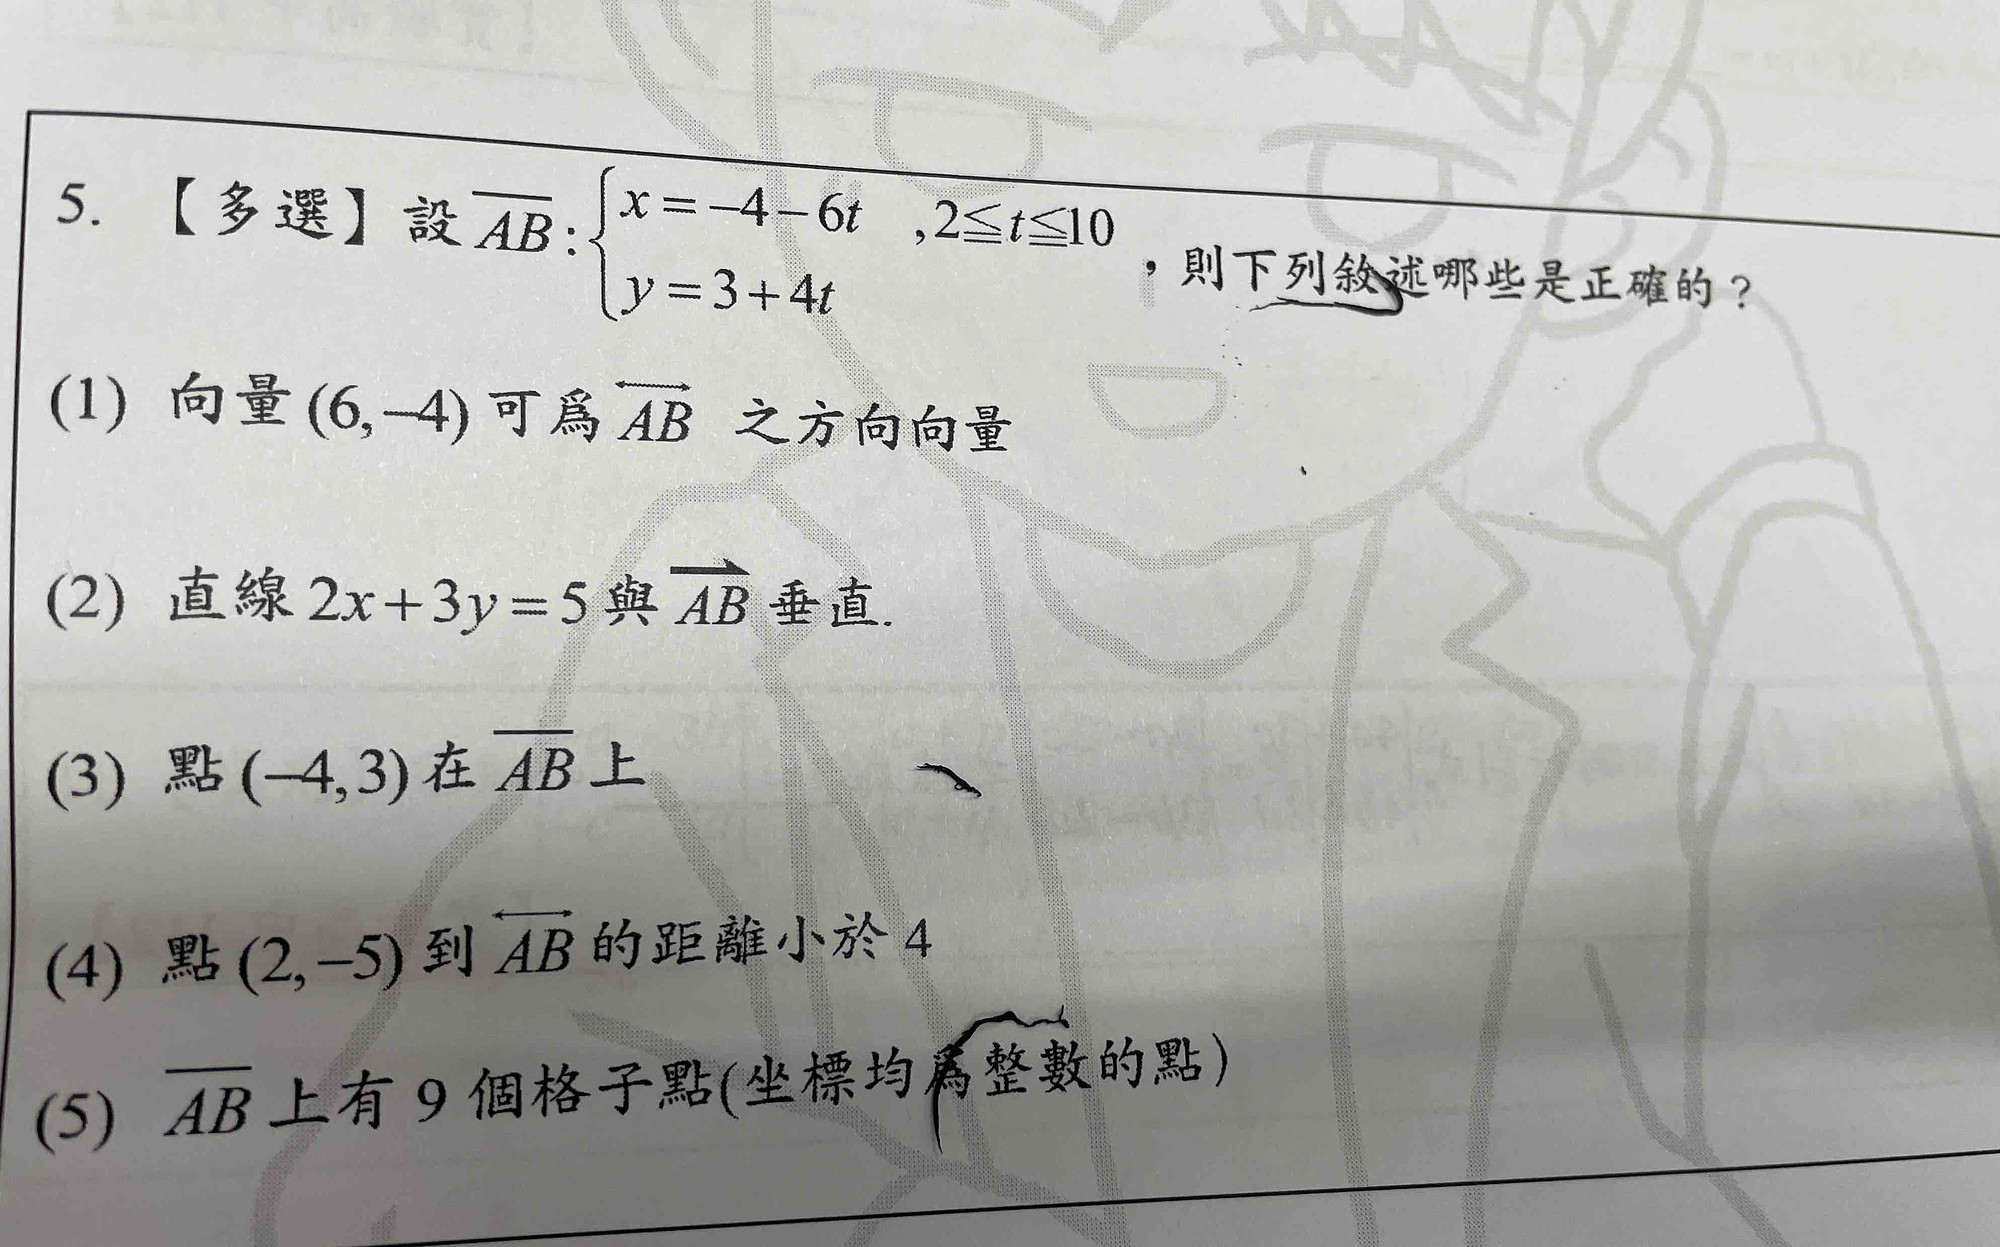 5. 【多選】設 \overline{AB}:\begin{cases} x=-4-6t \\ y=3+4t \end{cases} ,2≦t≦10，則下列敘述哪些是正確的？
(1) 向量(6,-4)可為 \overleftrightarrow{AB} 之方向向量
(2) 直線2x+3y=5與 \overrightarrow{AB} 垂直.
(3) 點(-4,3)在 \overline{AB} 上
(4) 點(2,-5)到 \overleftrightarrow{AB} 的距離小於4
(5) \overline{AB} 上有9個格子點(坐標均為整數的點)